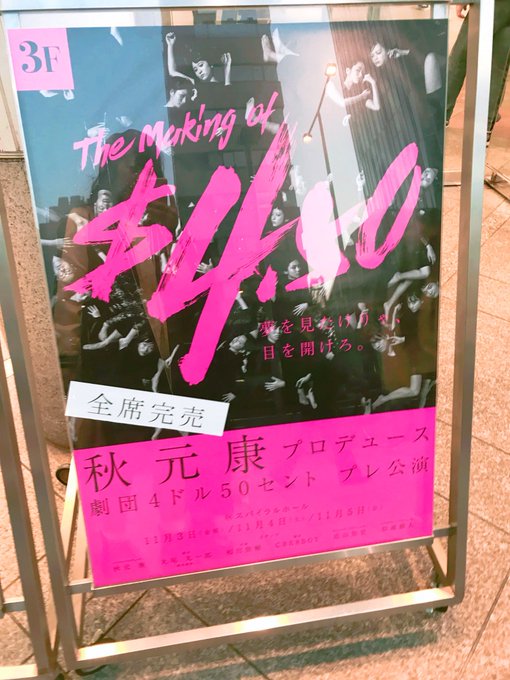 3F
The Making of
$4.50
夢を見たけりゃ、
目を開けろ。
全席完売
秋元康プロデュース
劇団4ドル50セント プレ公演
スパイラルホール
11月3日 /11月4日 /11月5日